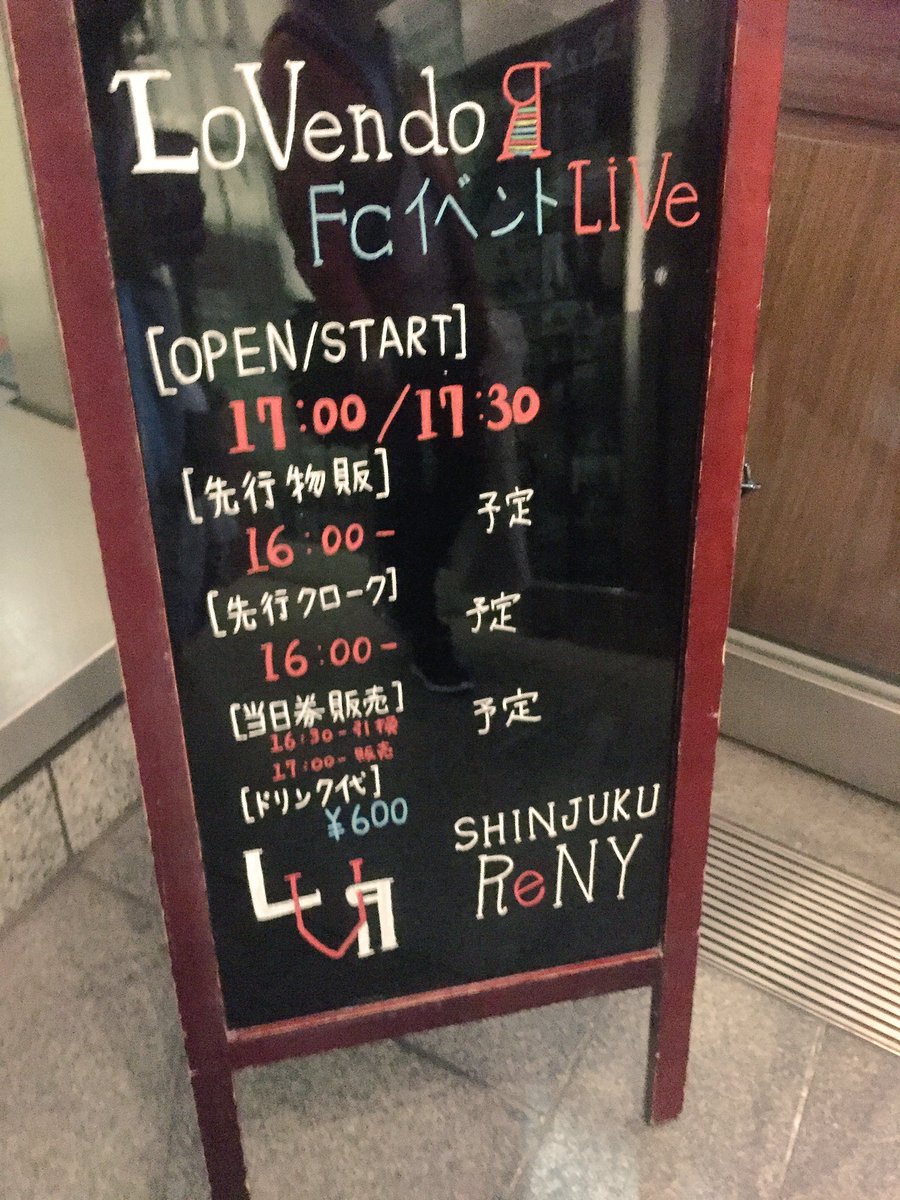 LoVendoЯ
FCイベント LiVe
[OPEN/START]
17:00/17:30
[先行物販]
16:00- 予定
[先行クローク]
16:00- 予定
[当日券販売] 予定
16:30-引換
17:00-販売
[ドリンク代]
¥600
LVЯ
SHINJUKU
ReNY